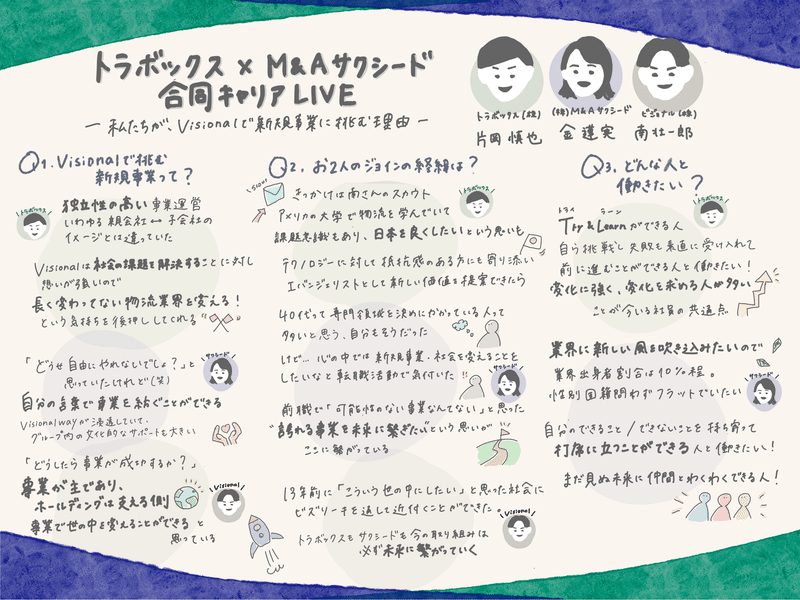 トラボックス × M&Aサクシード
合同キャリアLIVE
ー 私たちが、Visionalで新規事業に挑む理由 ー
トラボックス(株)
片岡 慎也
(株)M&Aサクシード
金 蓮実
ビジョナル(株)
南 壮一郎
Q1. Visionalで挑む
新規事業って?
トラボックス
独立性の高い事業運営
いわゆる親会社↔子会社の
イメージとは違っていた
Visionalは社会の課題を解決することに対し
想いが強いので
長く変わってない物流業界を変える!
という気持ちを後押ししてくれる
「どうせ自由にやれないでしょ?」と
思っていたけれど(笑)
サクシード
自分の言葉で事業を紡ぐことができる
Visional wayが浸透していて、
グループ内の文化的なサポートも大きい
「どうしたら事業が成功するか?」
事業が主であり、
ホールディングは支える側
Visional
事業で世の中を変えることができる と
思っている
Q2. お2人のジョインの経緯は?
きっかけは南さんのスカウト
トラボックス
アメリカの大学で物流を学んでいて
課題意識もあり、日本を良くしたいという思いも
テクノロジーに対して抵抗感のある方にも寄り添い
エバンジェリストとして新しい価値を提案できたら
40代って専門領域を決めにかっている人って
多いと思う、自分もそうだった
けど… 心の中では新規事業・社会を変えることを
したいなと転職活動で気付いた
サクシード
前職で「可能性のない事業なんてない」と思った
"誇れる事業を未来に繋ぎたい"という思いが
ここに繋がっている
13年前に「こういう世の中にしたい」と思った社会に
ビズリーチを通して近付くことができた
Visional
トラボックスもサクシードも今の取り組みは
必ず未来に繋がっていく
Q3. どんな人と
働きたい?
トラボックス
トライ ラーン
Try & Learn ができる人
自ら挑戦し失敗も素直に受け入れて
前に進むことができる人と働きたい!
変化に強く、変化を求める人が多い
ことが今いる社員の共通点
業界に新しい風を吹き込みたいので
業界出身者割合は10%程。
性別国籍問わずフラットでいたい
サクシード
自分のできること/できないことを持ち寄って
打席に立つことができる人と働きたい!
まだ見ぬ未来に仲間とわくわくできる人!